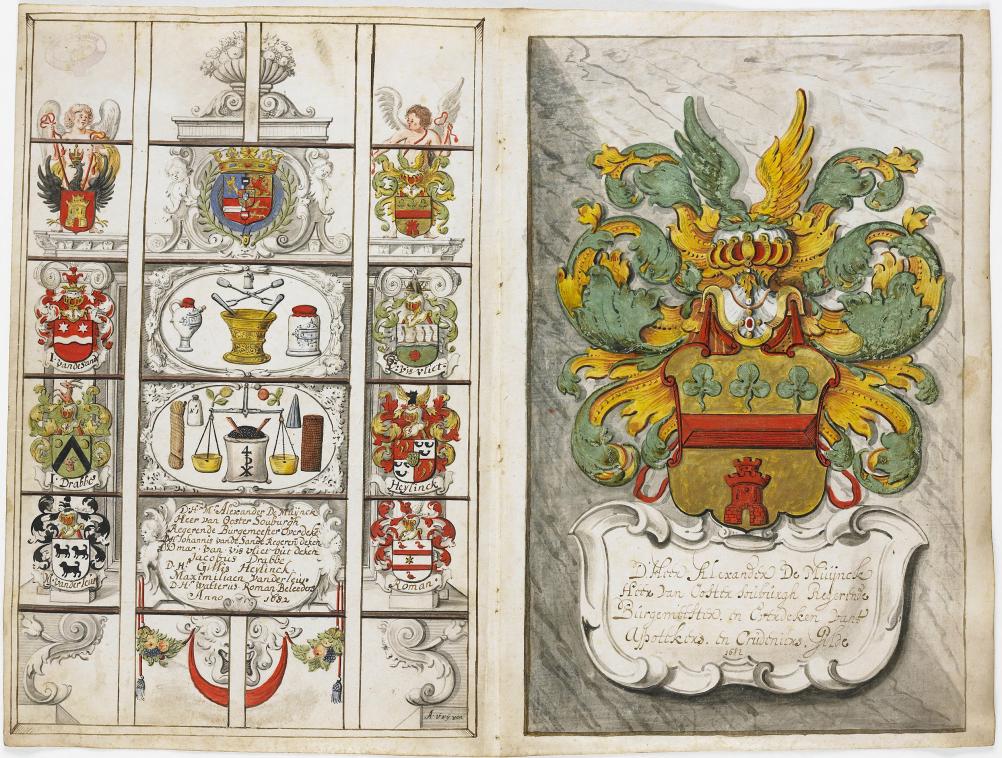 I. vandesand
P. vis vliet
I. Drabbe
Heylinck
M. vanderleur
Roman
D. Hr. Mr. Alexander De Muijnck
Heer van Ooster Souburgh
Regerende Burgemeester Overdeke
D. Hr. Johannis vande Sande Regeren deken
Omar. van vis vliet out deken
Jacobus Drabbe
D. Hr. Gillis Heylinck
Maximiliaen Vanderleur
D. Hr. Watterus Roman Beleeders
Anno 1682
D' Heer Alexander De Muijnck
Heer Van Ooster Souburgh Regerende
Burgemeester, en Overdeken vant
Appoteekers, en Crudeniers, Gilde
1682